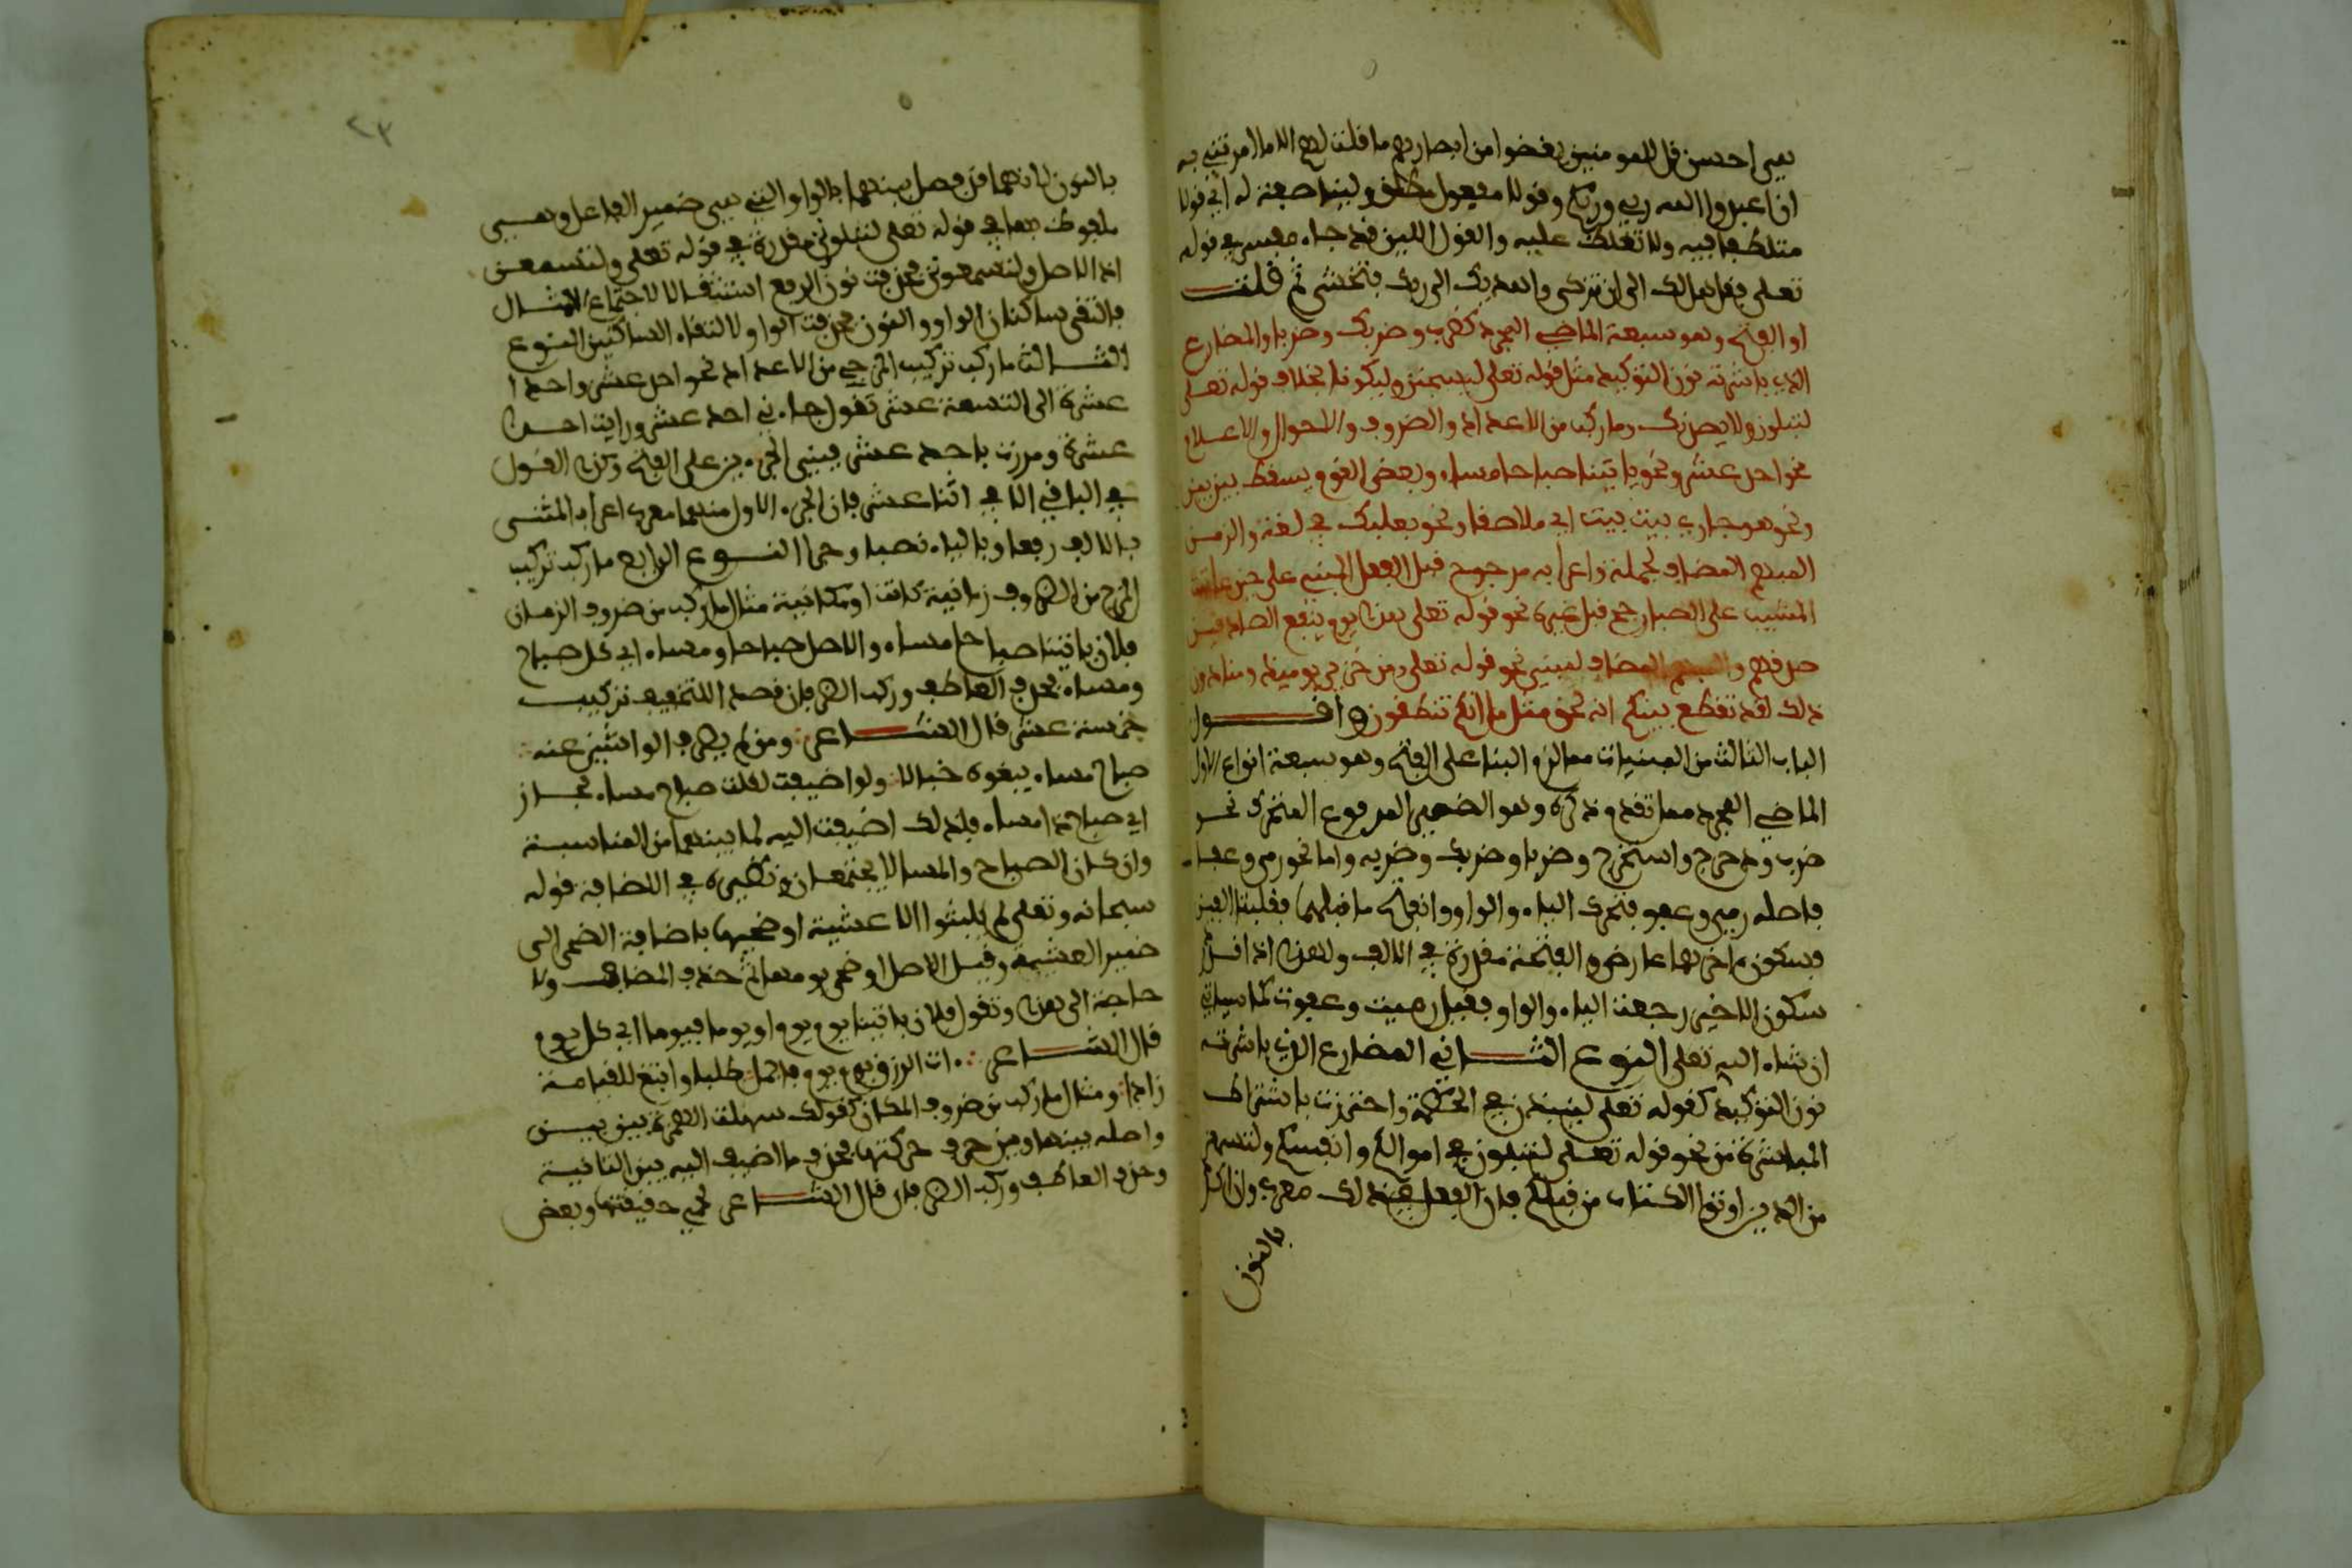 هي احسن قل للمومنين يغضوا من ابصارهم ما قلت لهم الا ما امرتني به
ان اعبدوا الله ربي وربكم وقولا مفعول مطلق ولينا صفة له اي قولا
متلطفا فيه ولا تغلظ عليه والقول اللين قد جاء مفسرا في قوله
تعلى فقل هل لك الى ان تزكى واهديك الى ربك فتخشى ثم قلت
او الفتح وهو سبعة الماضي المجرد كضرب وضربك وضربا والمضارع
الذي باشرته نون التوكيد مثل قوله تعلى ليسجنن وليكونا بخلاف قوله تعلى
لتبلون ولا يصدنك وما ركب من الاعداد والضروف والاحوال والاعلام
نحو احد عشر ونحو ياتينا صباح مساء وبعض القوم يسقط بين بين
ونحو هو جاري بيت بيت اي ملاصقا ونحو بعلبك في لغة والزمن
المبهم المضاف لجملة واعرابه مرجوح قبل الفعل المبني على حين عاتبت
المشيب على الصبا راجح قبل غيره نحو قوله تعلى هذا يوم ينفع الصادقين
صدقهم والمبهم المضاف لمبني نحو قوله تعلى ومن خزي يوميذ ومنا دون
ذلك لقد تقطع بينكم انه لحق مثل ما انكم تنطقون واقول
الباب الثالث من المبنيات ما لزم البنا على الفتح وهو سبعة انواع الاول
الماضي المجرد مما تقدم ذكره وهو الضمير المرفوع المتحرك نحو
ضرب ودحرج واستخرج وضربا وضربك وضربه واما نحو رمى وعفا
فاصله رمي وعفو فتحرك الياء والواو وانفتح ما قبلهما فقلبتا الفين
فسكون اخرهما عارض والفتحة مقدرة في الالف ولهذا اذا قدر
سكون الاخير رجعت الياء والواو فقيل رميت وعفوت كما سياتي
ان شاء الله تعلى النوع الثاني المضارع الذي باشرته
نون التوكيد كقوله تعلى لينبذن في الحطمة واحترزت باشتراط
المباشرة من نحو قوله تعلى لتبلون في اموالكم وانفسكم ولتسمعن
من الذين اوتوا الكتاب من قبلكم فان الفعل في ذلك معرب وان اكد
بالنون
٢٣
بالنون لانهما قد فصل بينهما بالواو التي هي ضمير الفاعل وهي
ملفوظ بها في قوله تعلى لتبلون مقدرة في قوله تعلى ولتسمعن
اذ الاصل ولتسمعونن فحذفت نون الرفع استثقالا لاجتماع الامثال
فالتقى ساكنان الواو والنون فحذفت الواو لالتقاء الساكنين النوع
الثالث ما ركب تركيب المزجي من الاعداد نحو احد عشر واحدا
عشرة الى التسعة عشر تقول جاءني احد عشر ورايت احدا
عشرة ومررت باحد عشر فبني الجزءين على الفتح وكذا القول
في الباقي الا في اثنا عشر فان الجزء الاول منهما معرب اعراب المثنى
بالالف رفعا وبالياء نصبا وجرا النوع الرابع ما ركب تركيب
المزج من الظروف زمانية كانت او مكانية مثال ما ركب من ضروف الزمان
فلان ياتينا صباح مساء والاصل صباحا ومساء اي كل صباح
ومساء فحذف العاطف وركب الظرفان قصد اللتخفيف تركيب
خمسة عشر قال الشاعر ومن لم يصرف الواشين عنه
صباح مساء يبغوه خبالا ولو اضيفت لقلت صباح مساء لجاز
اي صباحا ذا مساء فلذلك اضيفت اليه لما بينهما من المناسبة
وان كان الصباح والمساء لا يجتمعان ونظيره في الاضافة قوله
سبحانه وتعلى لم يلبثوا الا عشية او ضحيها باضافة الضحى الى
ضمير العشية وقيل الاصل او ضحى يومها ثم حذف المضاف ولا
حاجة الى هذا وتقول فلان ياتينا يوم يوم او يوما فيوما اي كل يوم
قال الشاعر ات الرزق يوم يوم فاجمل طلبا وابتغ للقيامة
زادا ومثال ما ركب من ضروف المكان كقولك سهلت الهمزة بين بين
واصله بينها وبين حرف حركتها فحذف ما اضيف اليه بين الثانية
وحذف العاطف وركب الظرفان قال الشاعر نحمي حقيقتنا وبعض